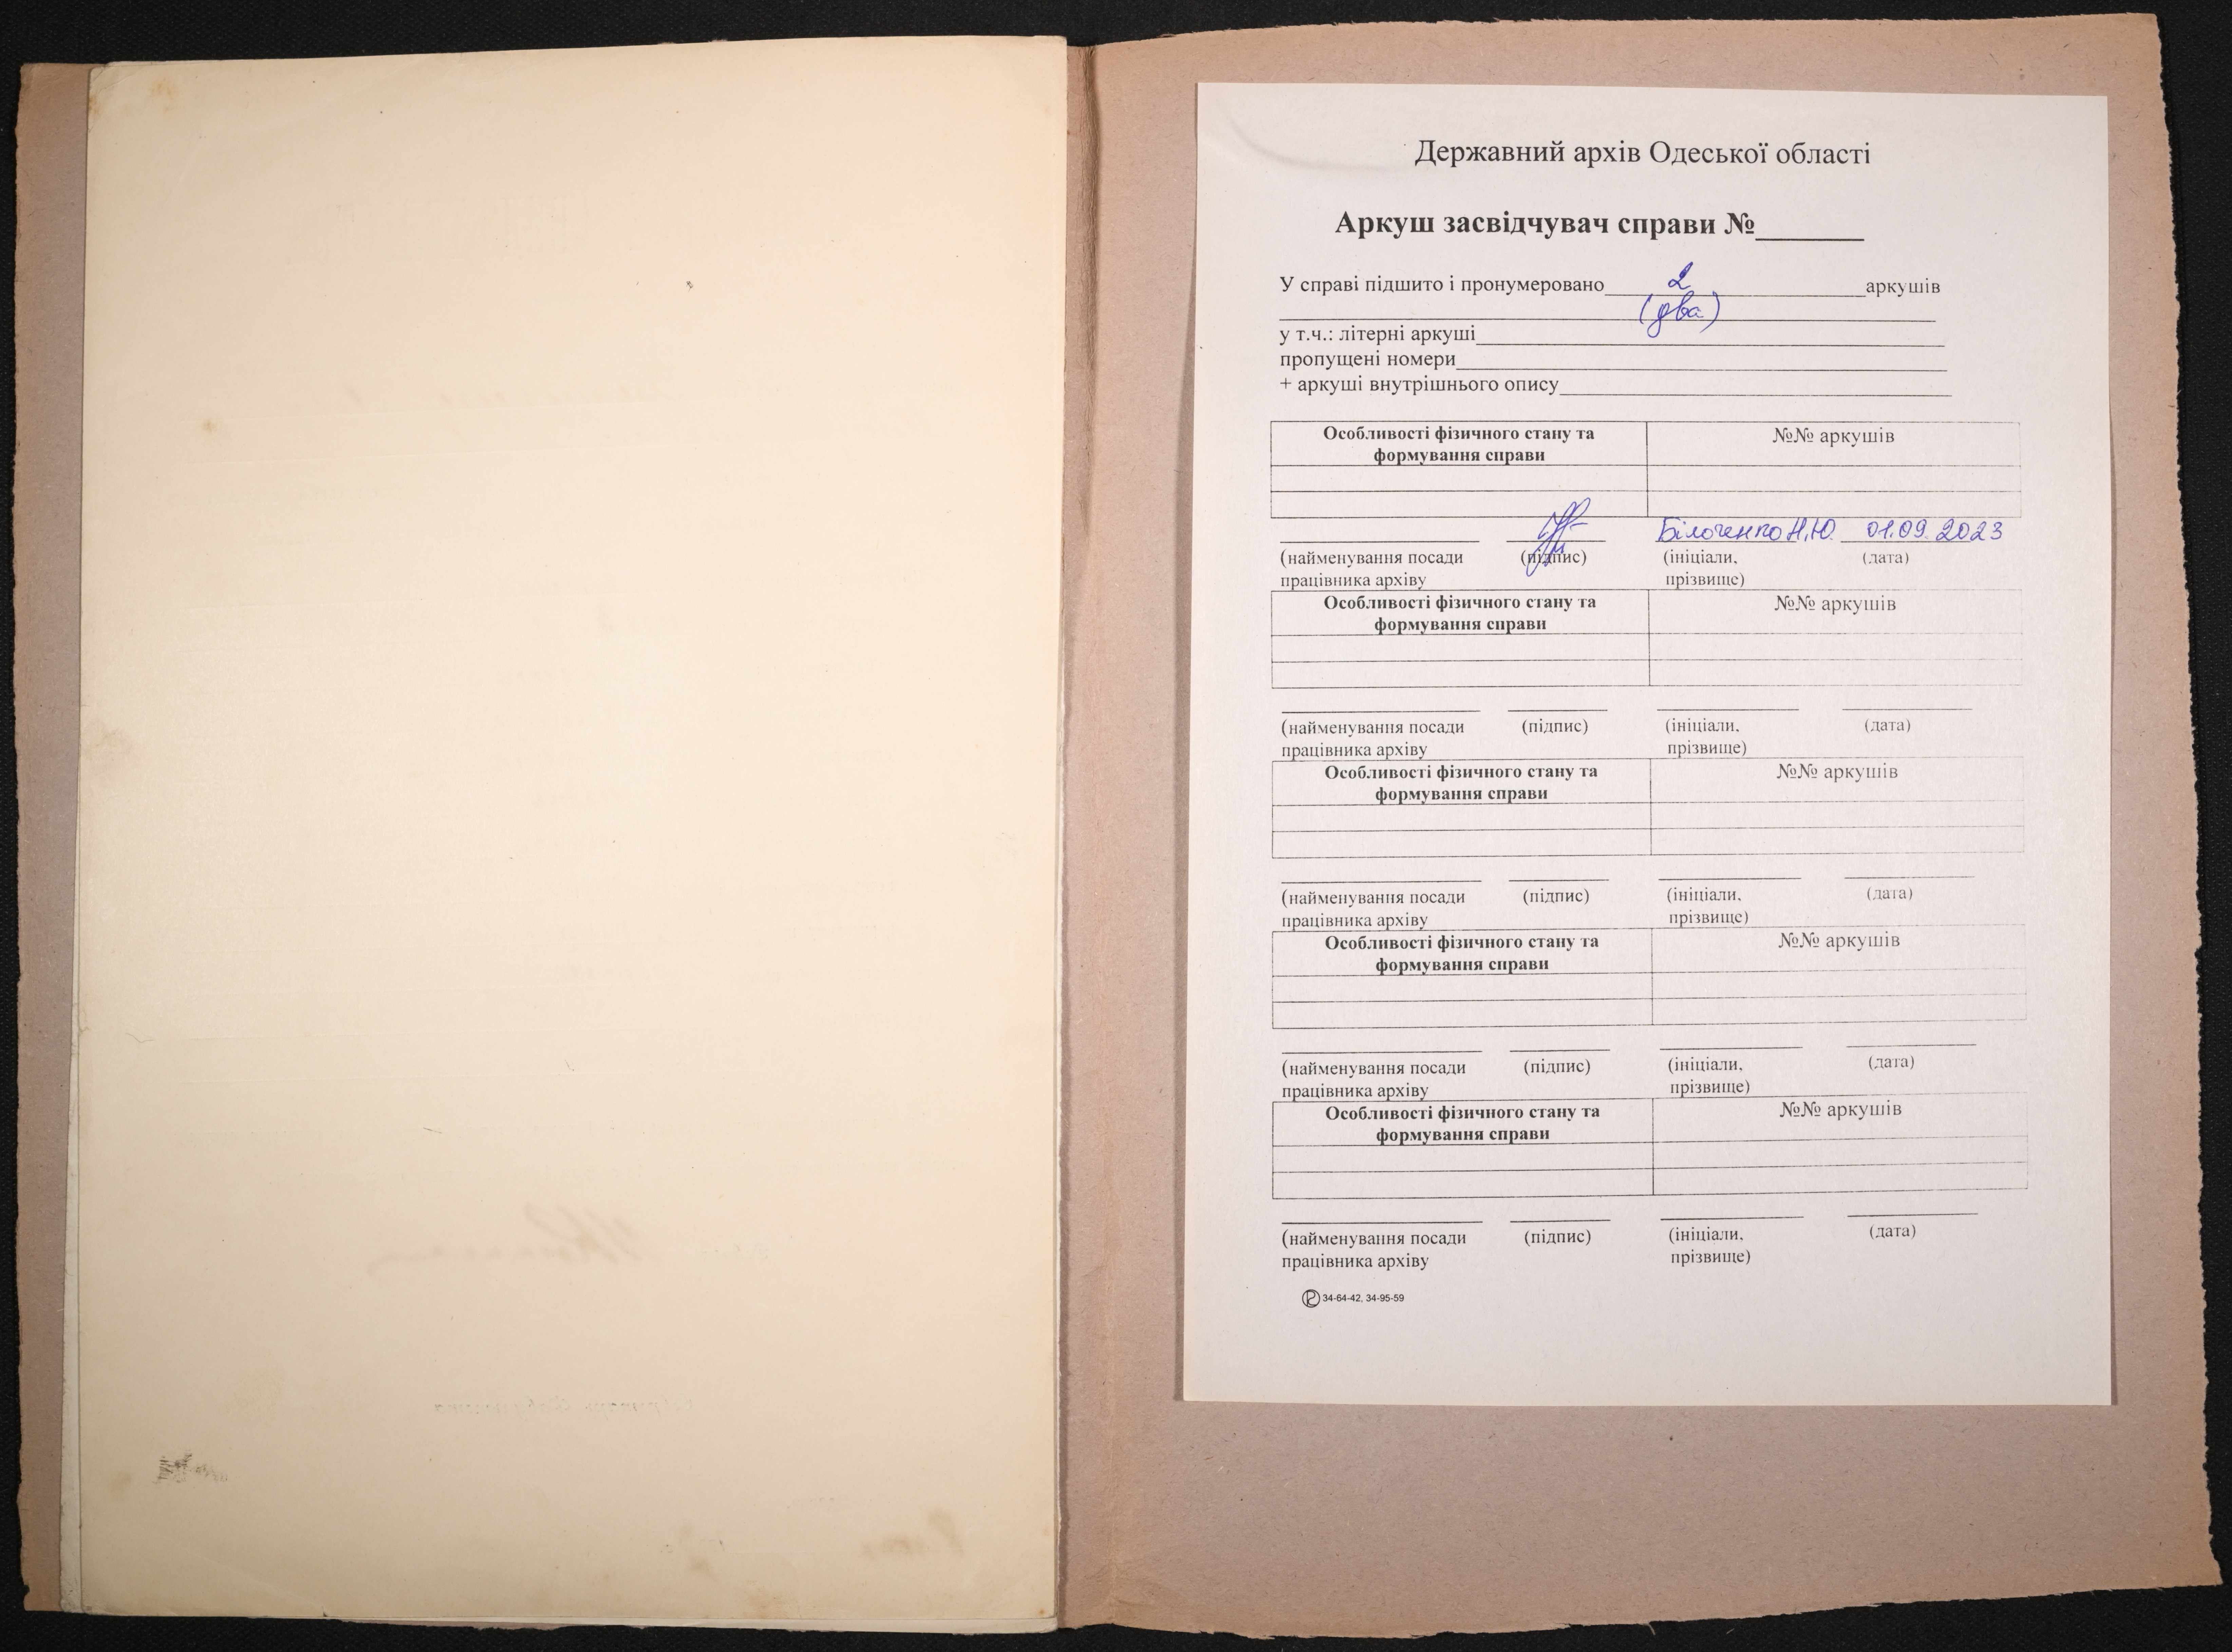 Державний архів Одеської області
Аркуш засвідчувач справи №_______
У справі підшито і пронумеровано 2 аркушів
(два)
у т.ч.: літерні аркуші
пропущені номери
+ аркуші внутрішнього опису
Особливості фізичного стану та №№ аркушів
формування справи
Білоченко Н.Ю. 01.09.2023
(найменування посади (підпис) (ініціали, (дата)
працівника архіву прізвище)
Особливості фізичного стану та №№ аркушів
формування справи
(найменування посади (підпис) (ініціали, (дата)
працівника архіву прізвище)
Особливості фізичного стану та №№ аркушів
формування справи
(найменування посади (підпис) (ініціали, (дата)
працівника архіву прізвище)
Особливості фізичного стану та №№ аркушів
формування справи
(найменування посади (підпис) (ініціали, (дата)
працівника архіву прізвище)
Особливості фізичного стану та №№ аркушів
формування справи
(найменування посади (підпис) (ініціали, (дата)
працівника архіву прізвище)
34-64-42, 34-95-59